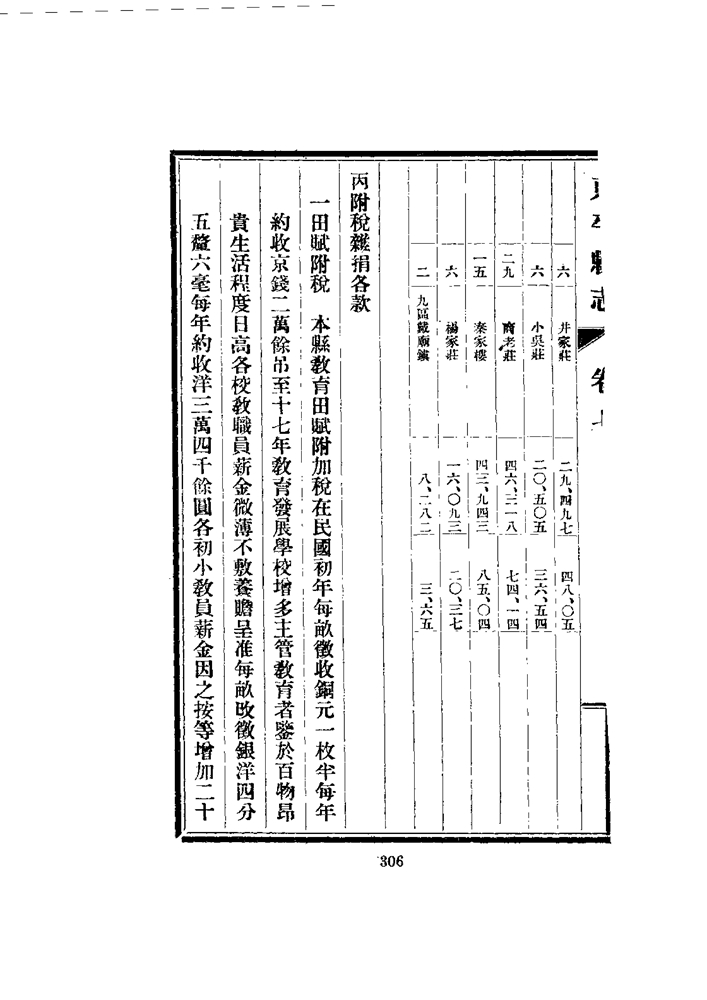 東平縣志 卷七
六 井家莊 二九、四九七 四八、〇五
六 小吳莊 二〇、五〇五 三六、五四
二九 商老莊 四六、三一八 七四、一四
一五 秦家樓 四三、九四三 八五、〇四
六 楊家莊 一六、〇九三 二〇、三七
二 九區戴廟鎮 八、二八二 三、六五
丙附稅雜捐各款
一田賦附稅 本縣教育田賦附加稅在民國初年每畝徵收銅元一枚半每年
約收京錢二萬餘吊至十七年教育發展學校增多主管教育者鑒於百物昂
貴生活程度日高各校教職員薪金微薄不敷養贍呈准每畝改徵銀洋四分
五釐六毫每年約收洋三萬四千餘圓各初小教員薪金因之按等增加二十
306